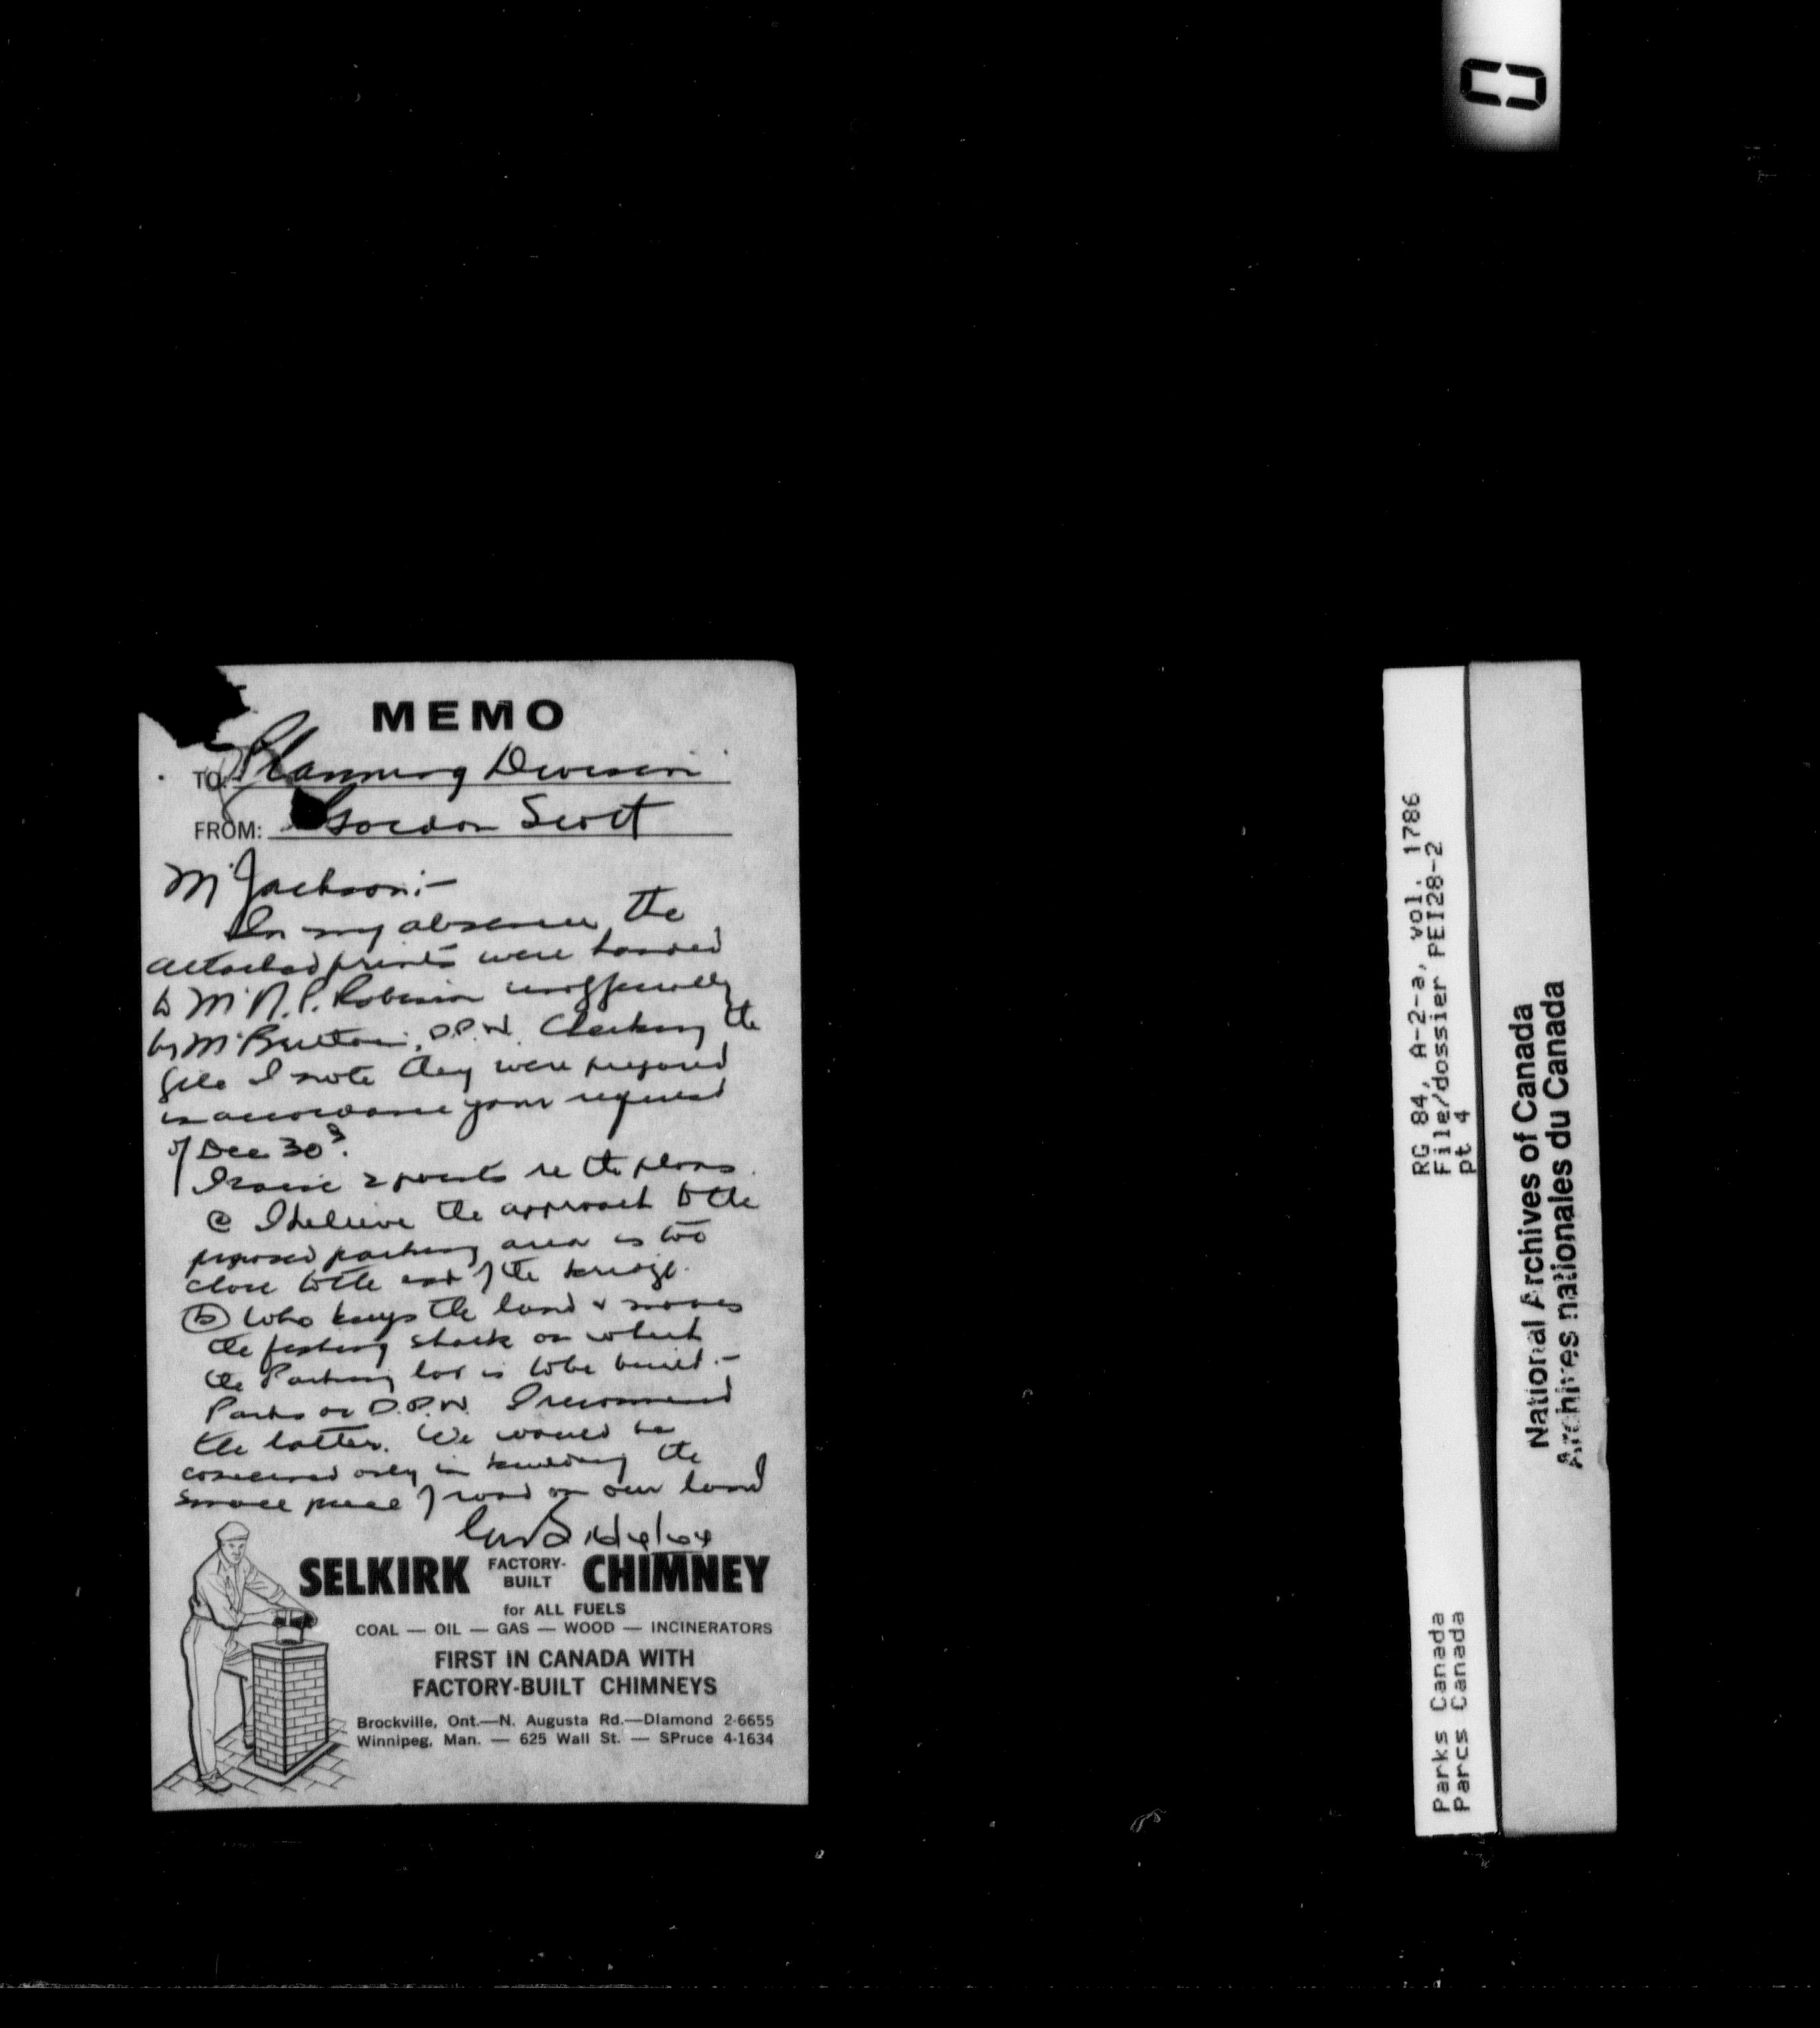 MEMO
TO: Planning Division
FROM: Gordon Scott
Mr Jackson:-
In my absence, the
attached prints were handed
to Mr N.P. Robinson unofficially
by Mr Britton, D.P.W. Checking the
file I note they were prepared
in accordance your request
of Dec 30
I raise 2 points re the plans.
(a) I believe the approach to the
proposed parking area is too
close to the end of the bridge.
(b) Who buys the land & moves
the fishing shack on which
the Parking lot is to be built.-
Parks or D.P.W. I recommend
the latter. We would be
concerned only in building the
small piece of road on our land
SELKIRK FACTORY-BUILT CHIMNEY
for ALL FUELS
COAL — OIL — GAS — WOOD — INCINERATORS
FIRST IN CANADA WITH
FACTORY-BUILT CHIMNEYS
Brockville, Ont.—N. Augusta Rd.—DIamond 2-6655
Winnipeg, Man. — 625 Wall St. — SPruce 4-1634
RG 84, A-2-a, vol. 1786
File/dossier PEI28-2
pt 4
Parks Canada
Parcs Canada
National Archives of Canada
Archives nationales du Canada